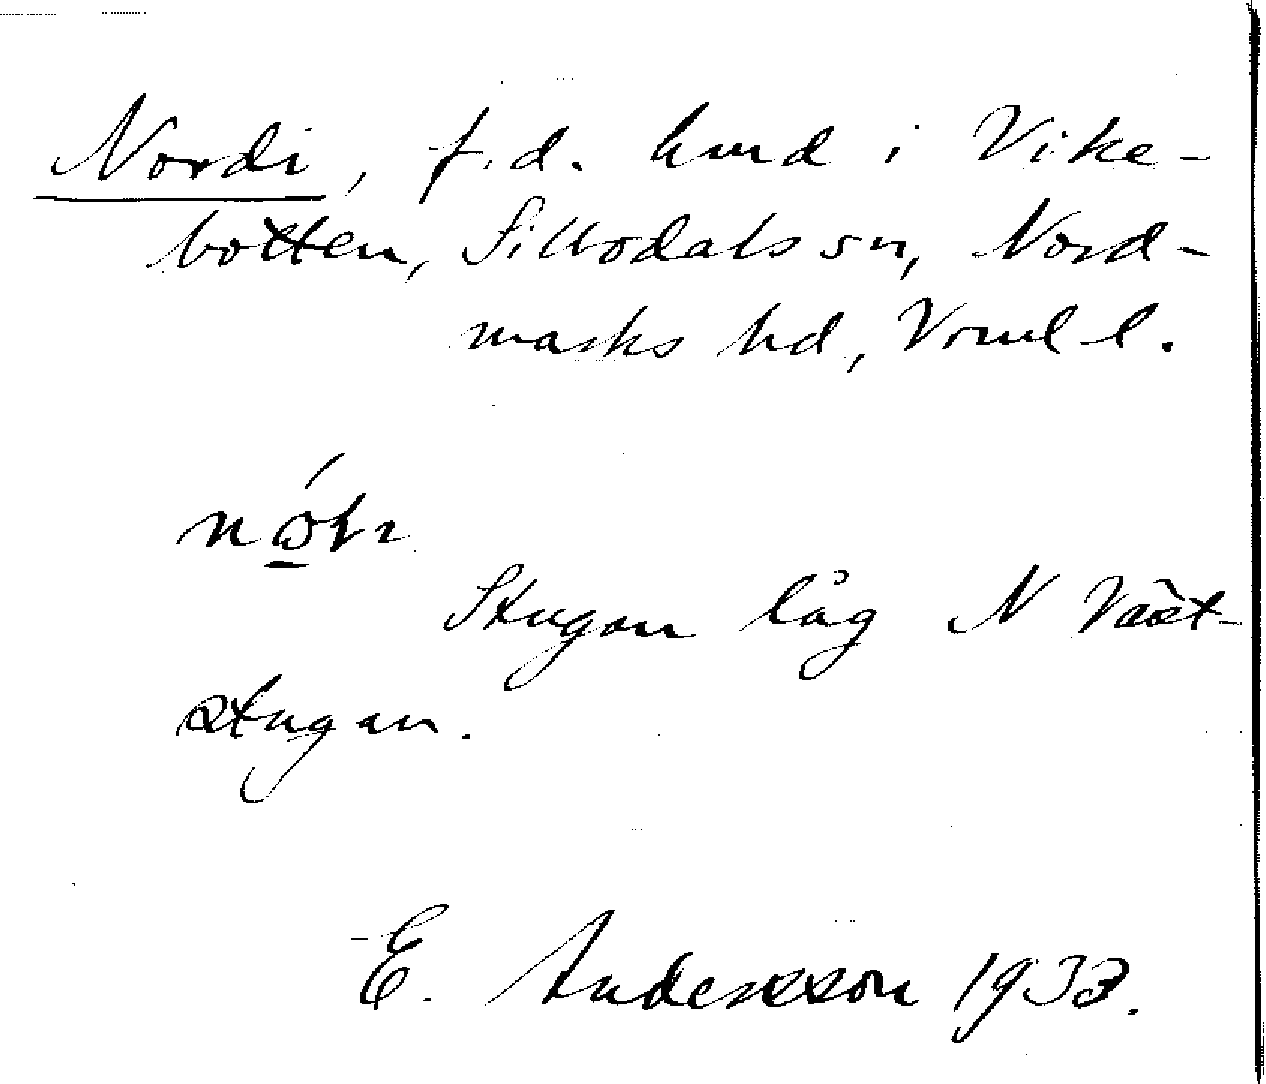 Nordi, f.d. hmd i Vike-
botten, Sillbodals sn, Nord-
marks hd, Vrml l.
Stugan låg N Väst-
stugan.
E. Andersson 1933.